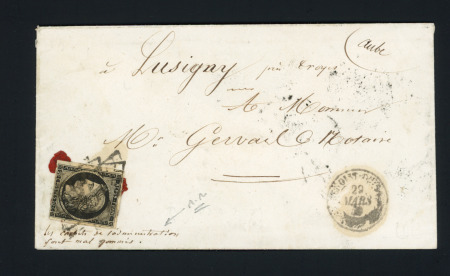 (Aube)
à Lusigny près Troyes
A Monsieur
Mr Gervais Notaire
29
MARS
les cachets de l'administration
sont mal gommés.